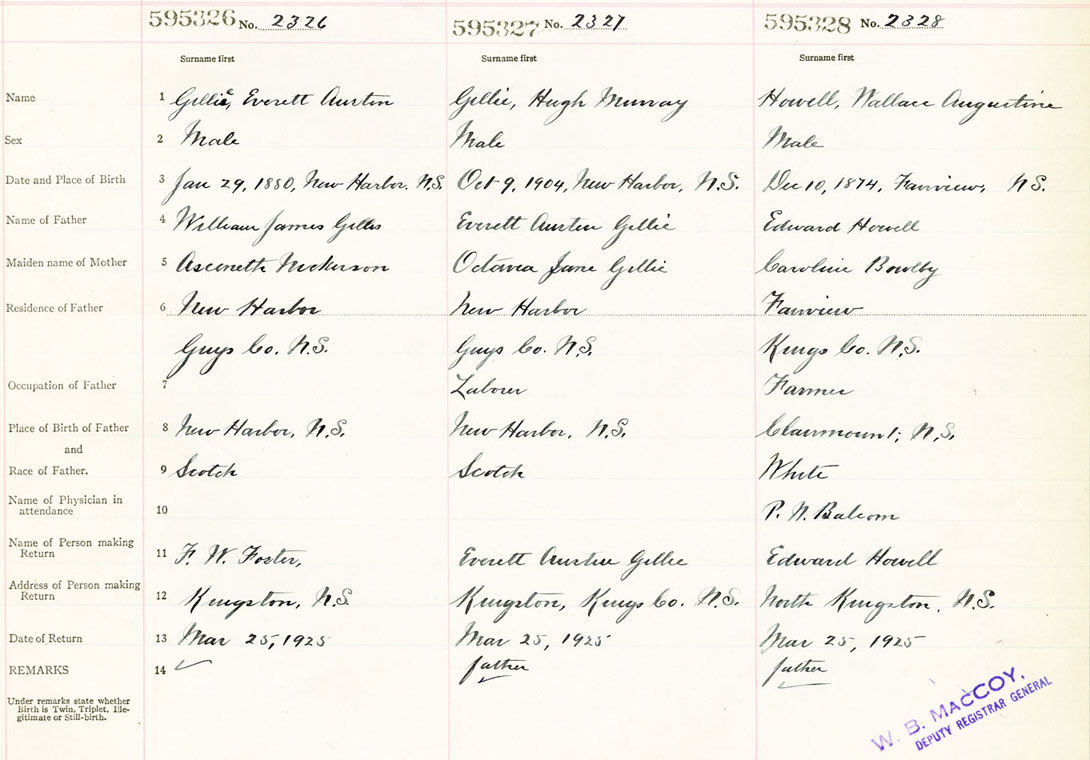 595326 No. 2326 595327 No. 2327 595328 No. 2328
Surname first Surname first Surname first
Name 1 Gillie, Everett Austin Gillie, Hugh Murray Howell, Wallace Augustine
Sex 2 Male Male Male
Date and Place of Birth 3 Jan 29, 1880, New Harbor, N.S. Oct 9, 1904, New Harbor, N.S. Dec 10, 1874, Fairview, N.S.
Name of Father 4 William James Everett Austin Gillie Edward Howell
Maiden name of Mother 5 Nickerson Octavea Jane Gillie Caroline Bowlby
Residence of Father 6 New Harbor New Harbor Fairview
Guys Co. N.S. Guys Co. N.S. Kings Co. N.S.
Occupation of Father 7 Laborer Farmer
Place of Birth of Father 8 New Harbor, N.S. New Harbor, N.S. Clairmount, N.S.
and
Race of Father. 9 Scotch Scotch White
Name of Physician in
attendance 10 P. N. Balcom
Name of Person making
Return 11 F. W. Foster, Everett Austin Gillie Edward Howell
Address of Person making
Return 12 Kingston, N.S. Kingston, Kings Co. N.S. North Kingston, N.S.
Date of Return 13 Mar 25, 1925 Mar 25, 1925 Mar 25, 1925
REMARKS 14 father father
Under remarks state whether
Birth is Twin, Triplet, Ille-
gitimate or Still-birth.
W. B. MACCOY,
DEPUTY REGISTRAR GENERAL